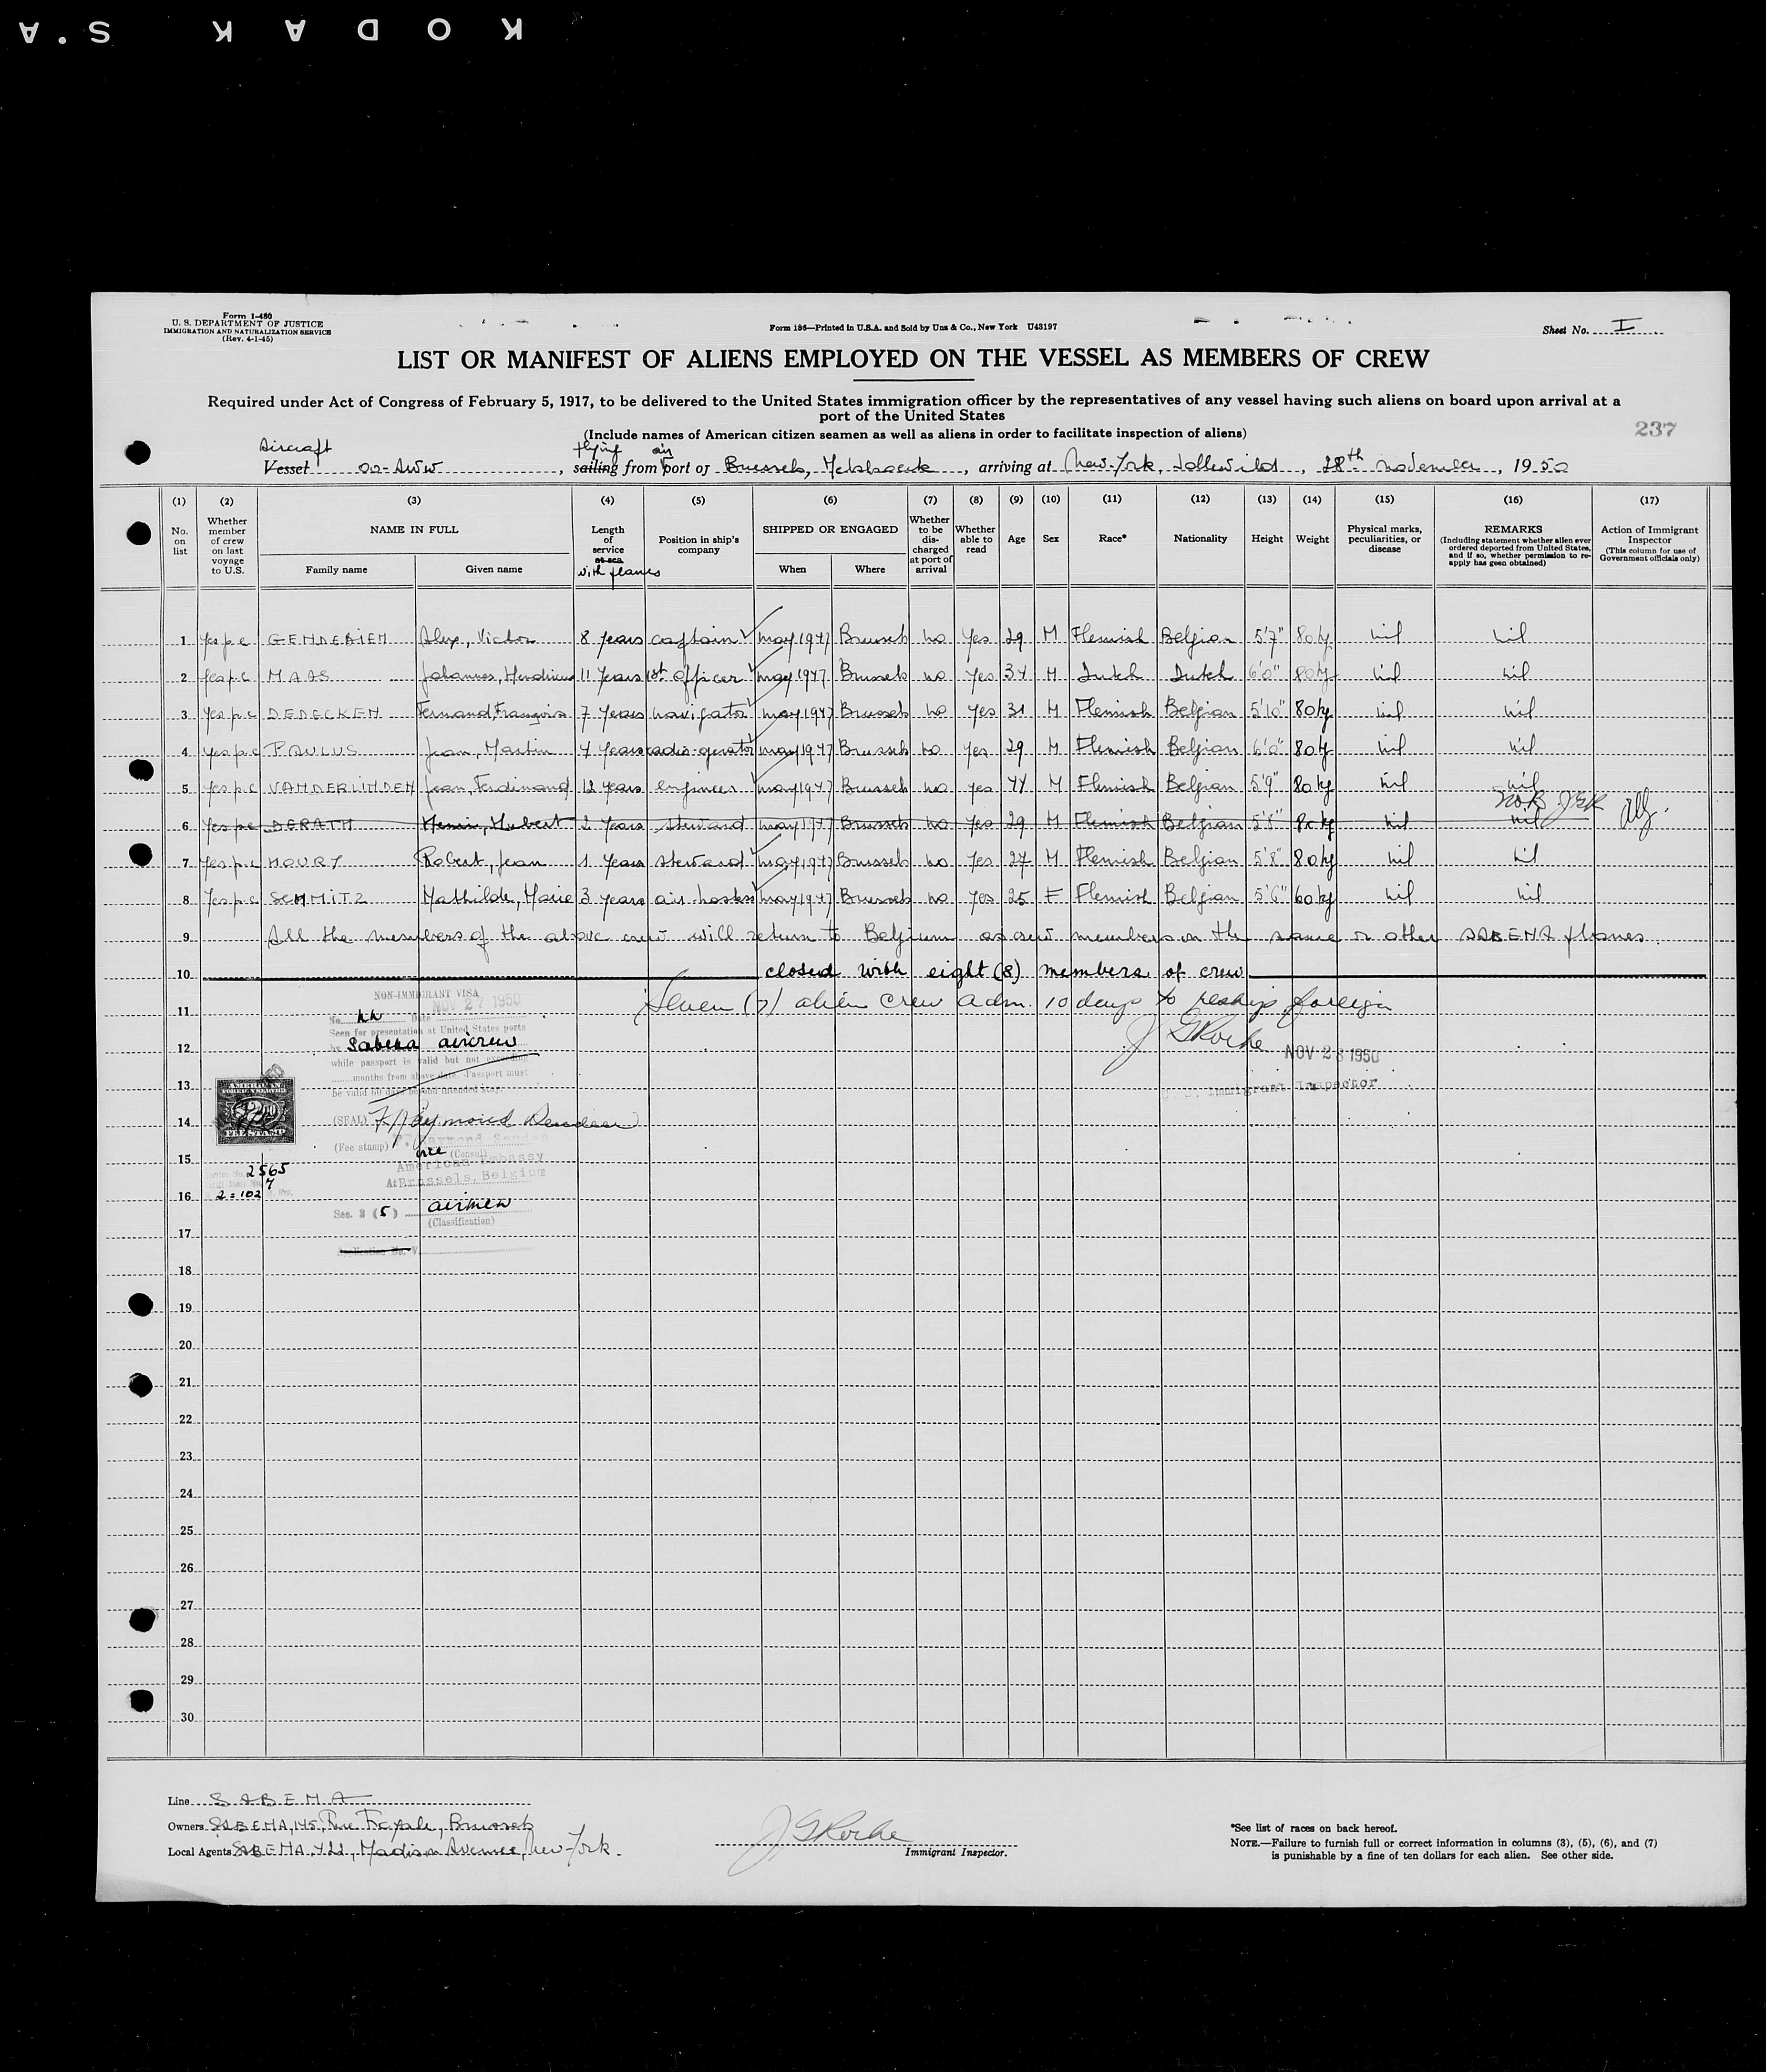 KODAK S.A
Form I-480
U. S. DEPARTMENT OF JUSTICE
IMMIGRATION AND NATURALIZATION SERVICE
(Rev. 4-1-45)
Form 186—Printed in U.S.A. and Sold by Unz & Co., New York U43197
Sheet No. I
LIST OR MANIFEST OF ALIENS EMPLOYED ON THE VESSEL AS MEMBERS OF CREW
Required under Act of Congress of February 5, 1917, to be delivered to the United States immigration officer by the representatives of any vessel having such aliens on board upon arrival at a
port of the United States
(Include names of American citizen seamen as well as aliens in order to facilitate inspection of aliens)
237
Aircraft flying air
Vessel OO-AWW, sailing from port of Brussels, Melsbroek, arriving at New-York, Idlewild, 28th november, 1950
(1) (2) (3) (4) (5) (6) (7) (8) (9) (10) (11) (12) (13) (14) (15) (16) (17)
No. on list
Whether member of crew on last voyage to U.S.
NAME IN FULL
Family name
Given name
Length of service at sea with planes
Position in ship's company
SHIPPED OR ENGAGED
When
Where
Whether to be discharged at port of arrival
Whether able to read
Age
Sex
Race*
Nationality
Height
Weight
Physical marks, peculiarities, or disease
REMARKS
(Including statement whether alien ever ordered deported from United States, and if so, whether permission to re-apply has geen obtained)
Action of Immigrant Inspector
(This column for use of Government officials only)
1 Yes p.c GENDEBIEN Alex, Victor 8 years captain may 1947 Brussels no Yes 29 M Flemish Belgian 5'7" 80 kg nil nil
2 Yes p.c MAAS Johannes, Hendricus 11 Years 1st officer may 1947 Brussels no Yes 34 M Dutch Dutch 6'0" 80 kg nil nil
3 Yes p.c DEDECKEN Fernand, François 7 Years navigator may 1947 Brussels no Yes 31 M Flemish Belgian 5'10" 80 kg nil nil
4 Yes p.c PAULUS Jean, Martin 4 Years radio-operator may 1947 Brussels no Yes 29 M Flemish Belgian 6'0" 80 kg nil nil
5 Yes p.c VANDERLINDEN Jean, Ferdinand 12 Years engineer may 1947 Brussels no yes 44 M Flemish Belgian 5'9" 80 kg nil nil
6 Yes p.c DERATH Henri, Hubert 2 Years steward may 1947 Brussels no Yes 29 M Flemish Belgian 5'8" 80 kg nil nil
7 Yes p.c HOURY Robert, Jean 1 Years steward may 1947 Brussels no Yes 27 M Flemish Belgian 5'8" 80 kg nil nil
8 Yes p.c SCHMITZ Mathilde, Marie 3 years air hostess may 1947 Brussels no Yes 25 F Flemish Belgian 5'6" 60 kg nil nil
9 All the members of the above crew will return to Belgium as crew members on the same or other SABENA planes.
10 closed with eight (8) members of crew
11 Seven (7) alien crew adm. 10 days to reship foreign
J G Roche
NOV 28 1950
U. S. Immigrant Inspector
NON-IMMIGRANT VISA
No. Date NOV 27 1950
Seen for presentation at United States ports
by Sabena aircrew
while passport is valid but not exceeding
months from above date. Passport must
be valid 60 days beyond intended stay.
(SEAL) F. Raymond
(Fee stamp) F. Raymond
vice (Consul)
American Embassy
At Brussels, Belgium
Sec. 3 (5) airmen
(Classification)
Application No. V
AMERICAN
FEE STAMP
2565
7
2=102
12
13
14
15
16
17
18
19
20
21
22
23
24
25
26
27
28
29
30
Line SABENA
Owners SABENA, 145, Rue Royale, Brussels
Local Agents SABENA, 422, Madison Avenue, New-York.
J G Roche
Immigrant Inspector.
*See list of races on back hereof.
NOTE.—Failure to furnish full or correct information in columns (3), (5), (6), and (7)
is punishable by a fine of ten dollars for each alien. See other side.